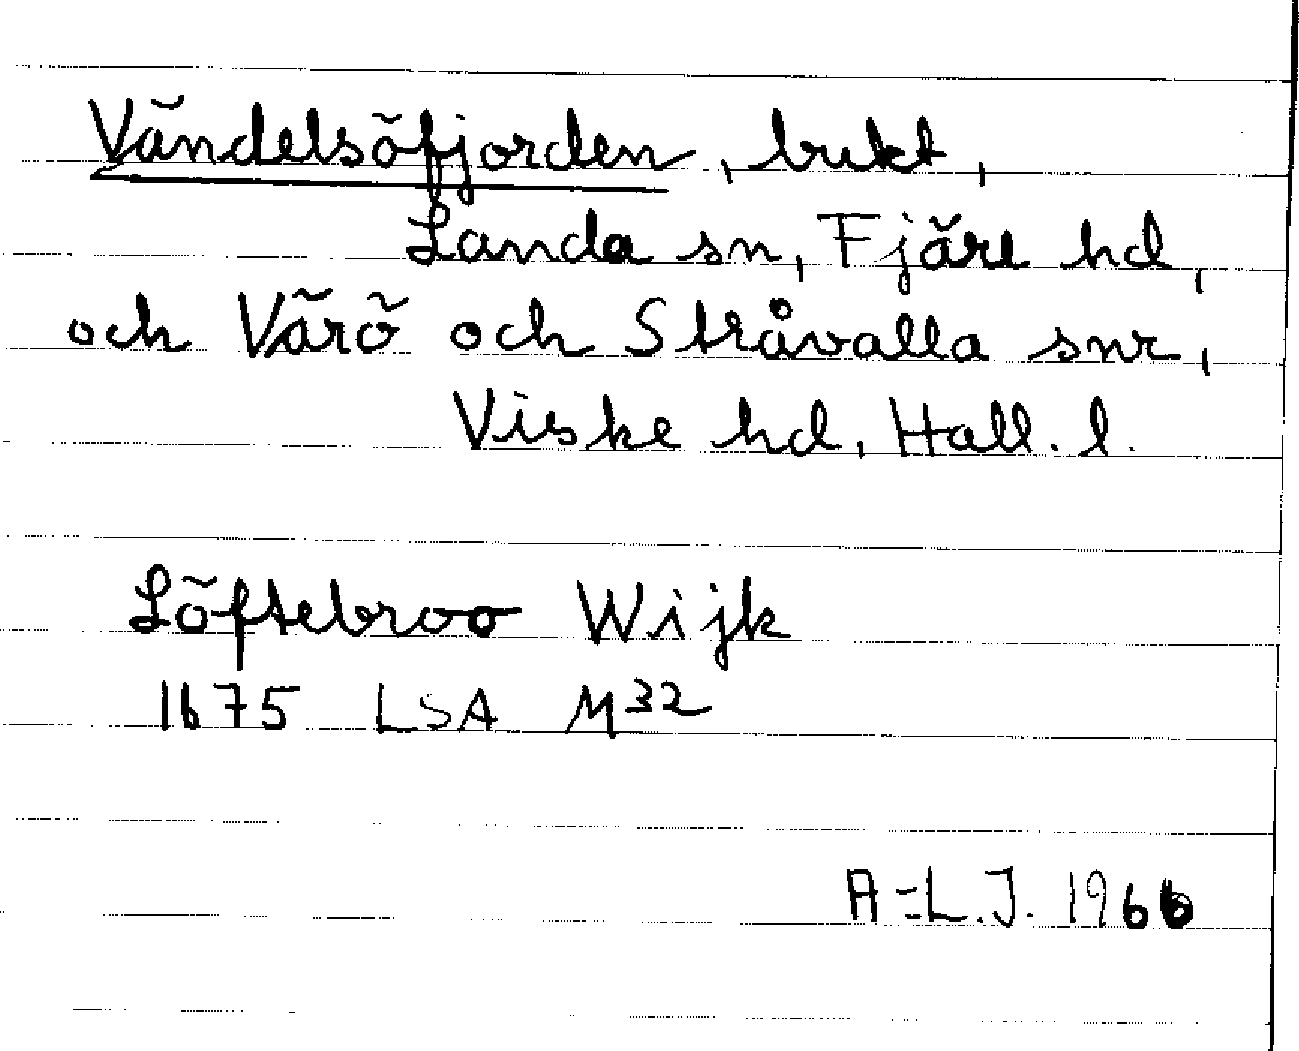 Vändelsöfjorden, bukt,
Landa sn, Fjäre hd,
och Värö och Stråvalla snr,
Viske hd, Hall. l.
Löftebroo Wijk
1675 LSA M32
A=L.J. 1966